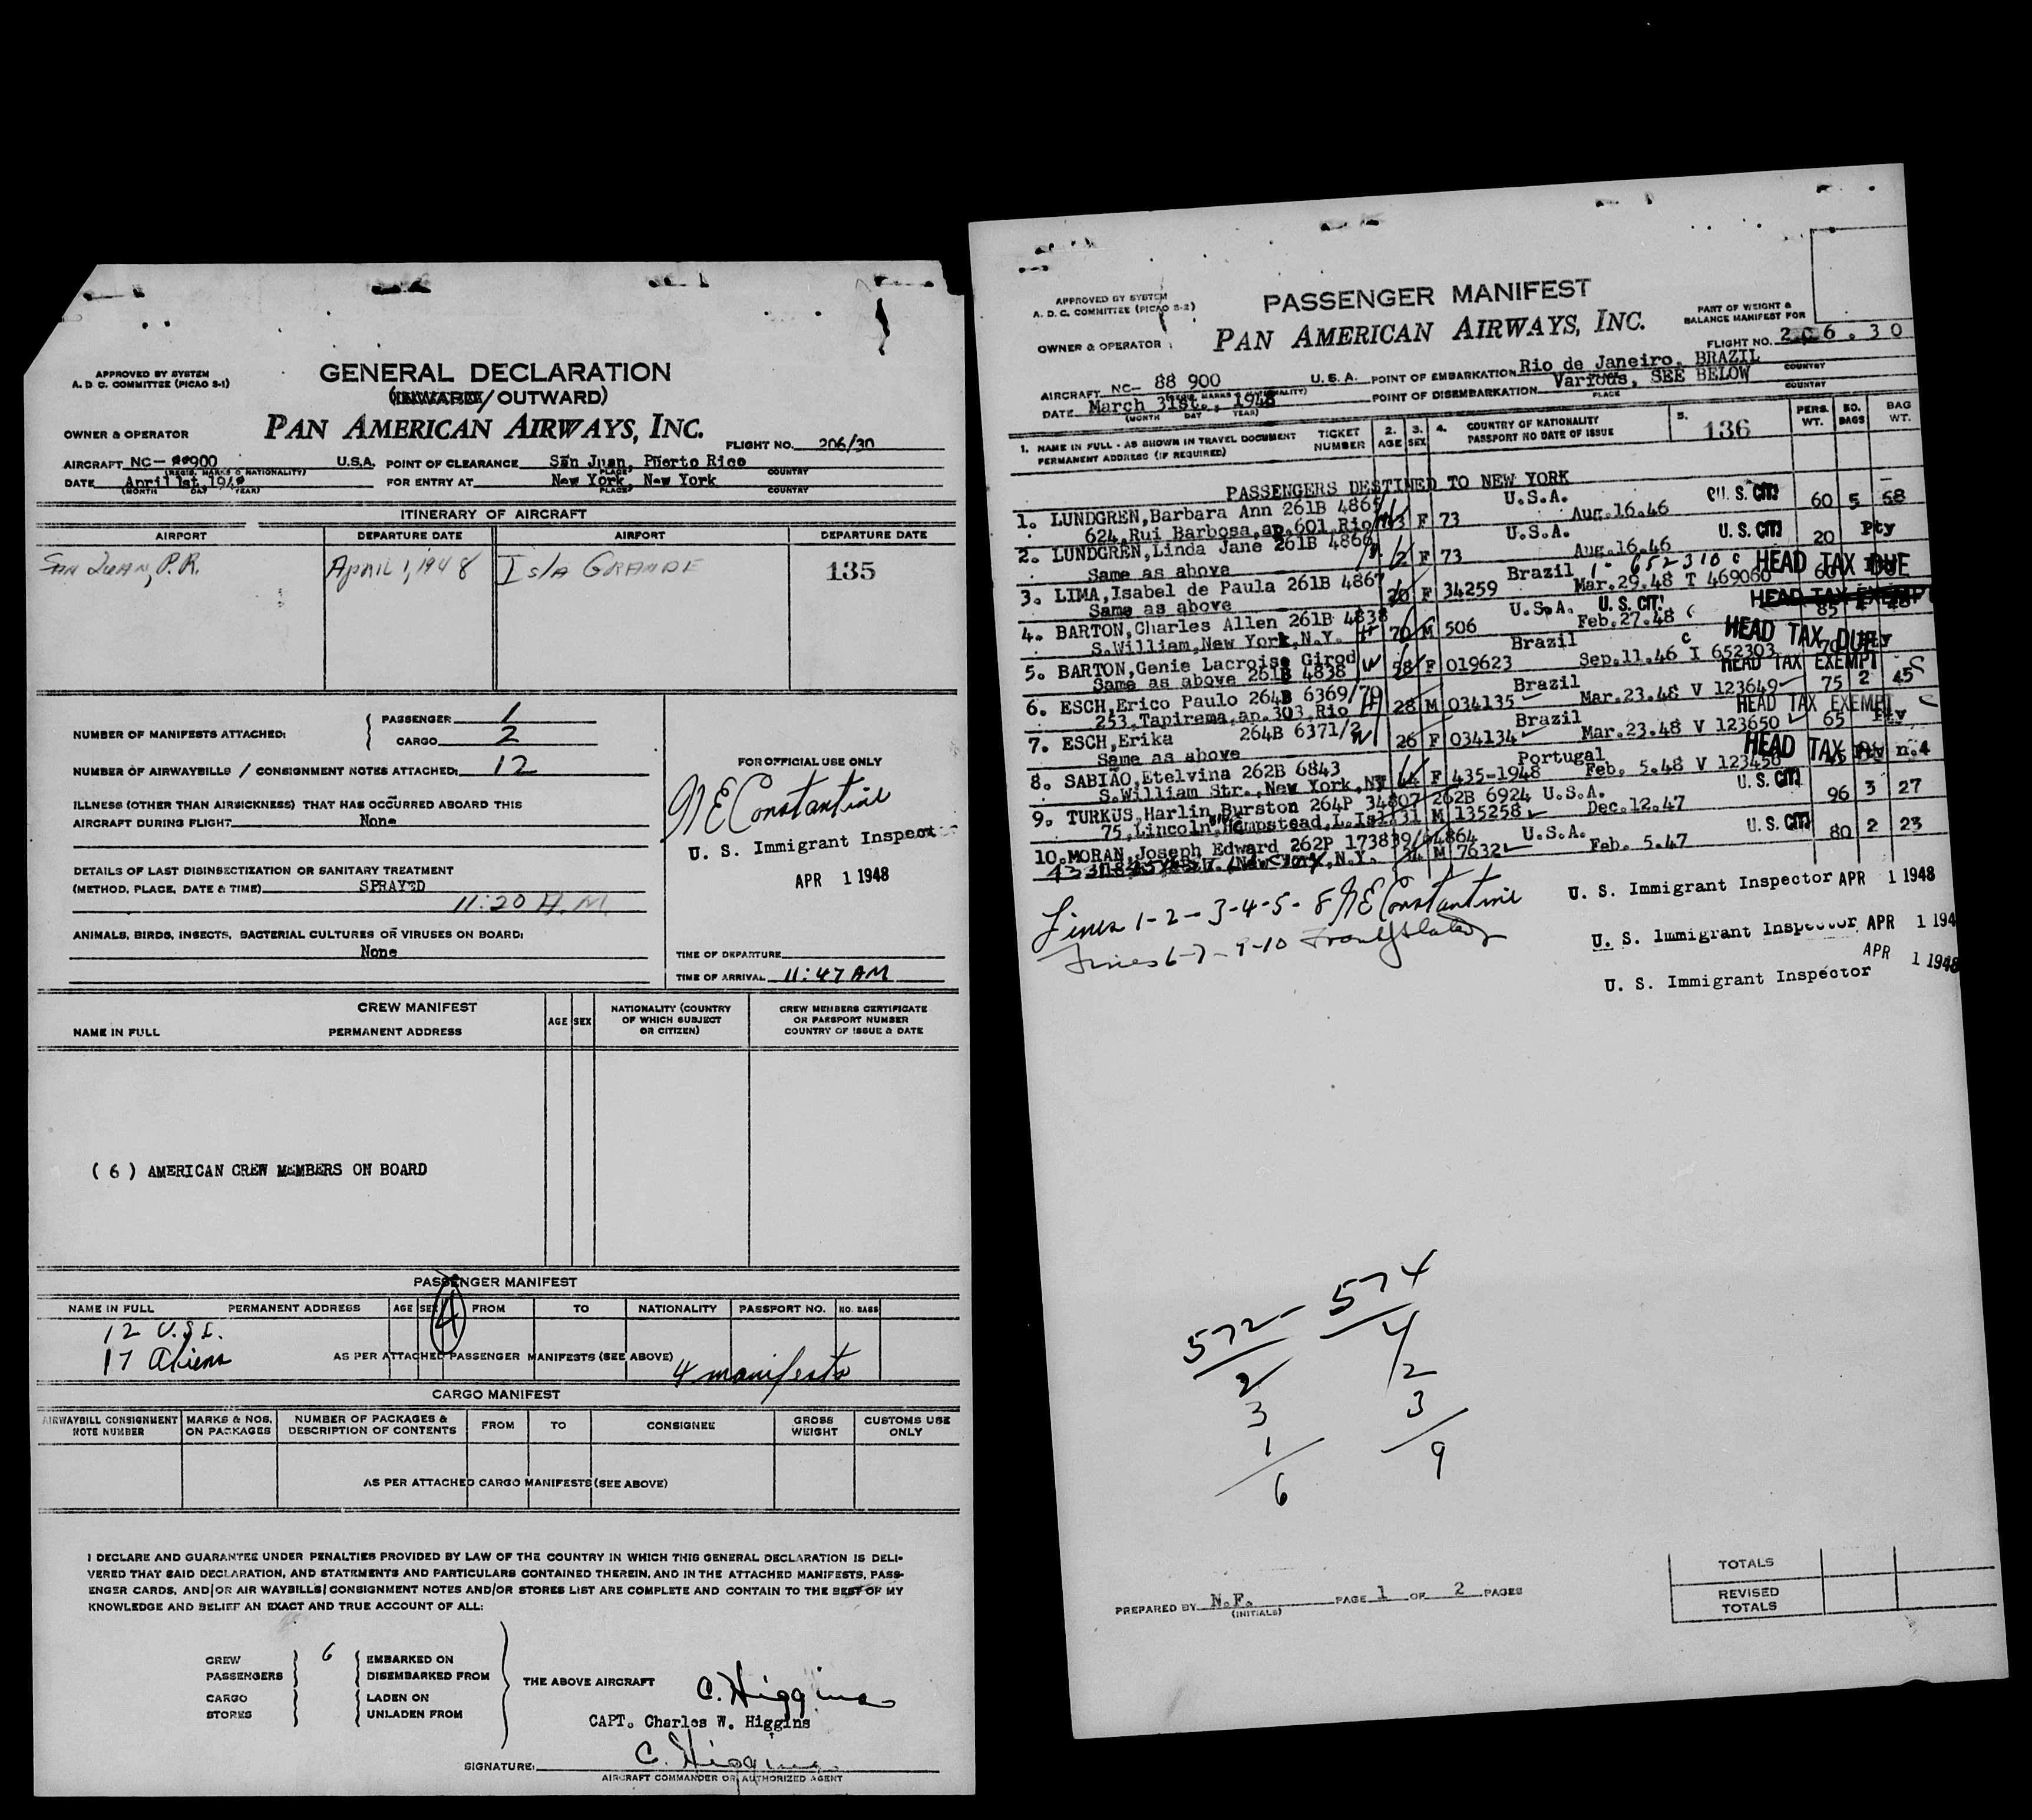 APPROVED BY SYSTEM
A. D. C. COMMITTEE (PICAO S-1)
GENERAL DECLARATION
(INWARD/OUTWARD)
OWNER & OPERATOR
PAN AMERICAN AIRWAYS, INC.
FLIGHT NO. 206/30
AIRCRAFT NC- 88900 U.S.A. POINT OF CLEARANCE San Juan, Puerto Rico
(REGIS. MARKS & NATIONALITY) PLACE COUNTRY
DATE April 1st 1948 FOR ENTRY AT New York, New York
(MONTH DAY YEAR) PLACE COUNTRY
ITINERARY OF AIRCRAFT
AIRPORT DEPARTURE DATE AIRPORT DEPARTURE DATE
SAN JUAN, P.R. APRIL 1, 1948 ISLA GRANDE 135
NUMBER OF MANIFESTS ATTACHED: PASSENGER 1
CARGO 2
NUMBER OF AIRWAYBILLS / CONSIGNMENT NOTES ATTACHED: 12
ILLNESS (OTHER THAN AIRSICKNESS) THAT HAS OCCURRED ABOARD THIS
AIRCRAFT DURING FLIGHT None
DETAILS OF LAST DISINSECTIZATION OR SANITARY TREATMENT
(METHOD, PLACE, DATE & TIME) SPRAYED
11:20 A.M.
ANIMALS, BIRDS, INSECTS, BACTERIAL CULTURES OR VIRUSES ON BOARD:
None
FOR OFFICIAL USE ONLY
N E Constantine
U. S. Immigrant Inspector
APR 1 1948
TIME OF DEPARTURE
TIME OF ARRIVAL 11:47 AM
CREW MANIFEST
NAME IN FULL PERMANENT ADDRESS AGE SEX NATIONALITY (COUNTRY OF WHICH SUBJECT OR CITIZEN) CREW MEMBERS CERTIFICATE OR PASSPORT NUMBER COUNTRY OF ISSUE & DATE
( 6 ) AMERICAN CREW MEMBERS ON BOARD
PASSENGER MANIFEST
4
NAME IN FULL PERMANENT ADDRESS AGE SEX FROM TO NATIONALITY PASSPORT NO. NO. BAGS
12 U.S.C.
17 Aliens
AS PER ATTACHED PASSENGER MANIFESTS (SEE ABOVE)
4 manifests
CARGO MANIFEST
AIRWAYBILL CONSIGNMENT NOTE NUMBER MARKS & NOS. ON PACKAGES NUMBER OF PACKAGES & DESCRIPTION OF CONTENTS FROM TO CONSIGNEE GROSS WEIGHT CUSTOMS USE ONLY
AS PER ATTACHED CARGO MANIFESTS (SEE ABOVE)
I DECLARE AND GUARANTEE UNDER PENALTIES PROVIDED BY LAW OF THE COUNTRY IN WHICH THIS GENERAL DECLARATION IS DELI-
VERED THAT SAID DECLARATION, AND STATEMENTS AND PARTICULARS CONTAINED THEREIN, AND IN THE ATTACHED MANIFESTS, PASS-
ENGER CARDS, AND/OR AIR WAYBILLS/CONSIGNMENT NOTES AND/OR STORES LIST ARE COMPLETE AND CONTAIN TO THE BEST OF MY
KNOWLEDGE AND BELIEF AN EXACT AND TRUE ACCOUNT OF ALL:
CREW 6 EMBARKED ON
PASSENGERS DISEMBARKED FROM
CARGO LADEN ON
STORES UNLADEN FROM
THE ABOVE AIRCRAFT
C. Higgins
CAPT. Charles W. Higgins
SIGNATURE: C. Higgins
AIRCRAFT COMMANDER OR AUTHORIZED AGENT
APPROVED BY SYSTEM
A. D. C. COMMITTEE (PICAO S-2)
PASSENGER MANIFEST
PART OF WEIGHT &
BALANCE MANIFEST FOR
OWNER & OPERATOR:
PAN AMERICAN AIRWAYS, INC.
FLIGHT NO. 206.30
AIRCRAFT NC- 88 900 U.S.A. POINT OF EMBARKATION Rio de Janeiro, BRAZIL
COUNTRY
DATE March 31st., 1948 POINT OF DISEMBARKATION Various, SEE BELOW
(MONTH DAY YEAR) PLACE COUNTRY
1. NAME IN FULL - AS SHOWN IN TRAVEL DOCUMENT PERMANENT ADDRESS (IF REQUIRED) TICKET NUMBER 2. AGE 3. SEX 4. COUNTRY OF NATIONALITY PASSPORT NO DATE OF ISSUE 5. 136 PERS. WT. NO. BAGS BAG WT.
PASSENGERS DESTINED TO NEW YORK
1. LUNDGREN,Barbara Ann 261B 4865 U.S.A. U. S. CIT! 60 5 58
624,Rui Barbosa,ap.601,Rio F 73 Aug.16.46
2. LUNDGREN,Linda Jane 261B 4866 U.S.A. U. S. CIT! 20 Pty
Same as above 2 F 73 Aug.16.46
3. LIMA,Isabel de Paula 261B 4867 Brazil 1- 652310 c HEAD TAX DUE
Same as above 20 F 34259 Mar.29.48 T 469060 60
4. BARTON,Charles Allen 261B 4838 U.S.A. U. S. CIT! HEAD TAX EXEMPT
S.William,New York,N.Y. 70 M 506 Feb.27.48 85
5. BARTON,Genie Lacroise Girod Brazil c HEAD TAX DUE
Same as above 261B 4838 W 58 F 019623 Sep.11.46 I 652303 70 Pty
6. ESCH,Erico Paulo 264B 6369/70 Brazil HEAD TAX EXEMPT
253,Tapirema,ap.303,Rio 28 M 034135 Mar.23.48 V 123649 75 2 45
7. ESCH,Erika 264B 6371/2 Brazil HEAD TAX EXEMPT
Same as above W 26 F 034134 Mar.23.48 V 123650 65 Pty
8. SABIÃO,Etelvina 262B 6843 Portugal HEAD TAX
S.William Str.,New York,NY 44 F 435-1948 Feb. 5.48 V 123458 Pty n.4
9. TURKUS,Harlin Burston 264P 34807 262B 6924 U.S.A. U. S. CIT!
75,Lincoln,Hempstead,L.Isl 31 M 135258 Dec.12.47 96 3 27
10.MORAN,Joseph Edward 262P 173839/64864 U.S.A. U. S. CIT!
New York,N.Y. 34 M 7632 Feb. 5.47 80 2 23
Lines 1-2-3-4-5-8 N E Constantine
Lines 6-7-9-10
U. S. Immigrant Inspector APR 1 1948
U. S. Immigrant Inspector APR 1 194
APR 1 1948
U. S. Immigrant Inspector
572- 574
2 4
3 2
1 3
6 9
TOTALS
REVISED TOTALS
PREPARED BY N.F. PAGE 1 OF 2 PAGES
(INITIALS)